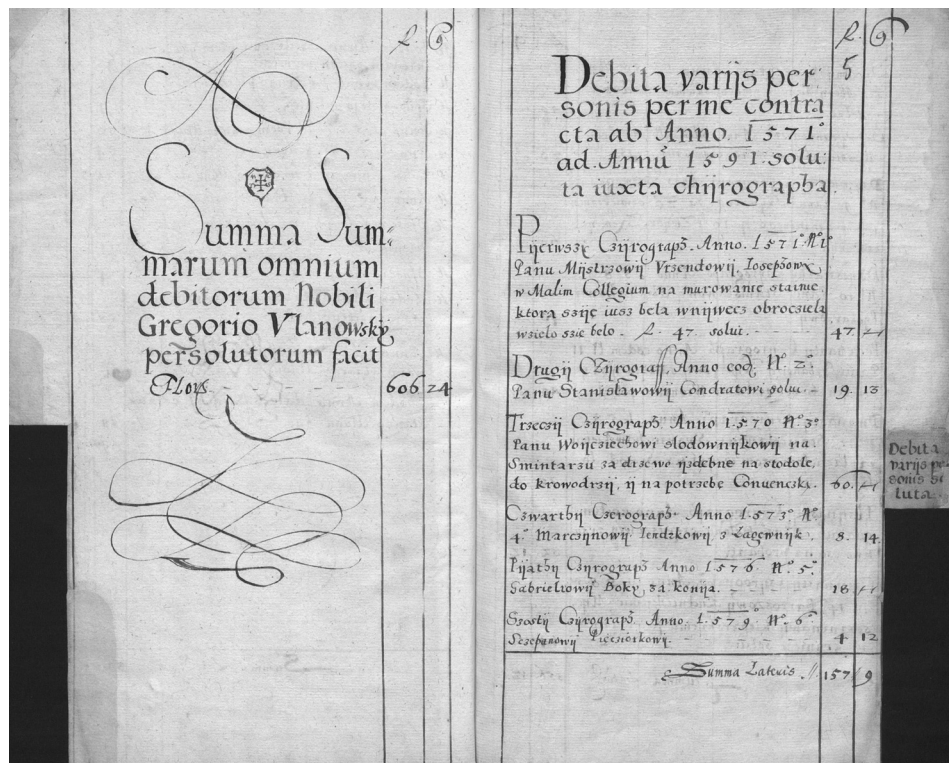 Summa Sum=
marum omnium
debitorum Nobili
Gregorio Vlanowsky
persolutorum facit
606 24
5
Debita varijs per
sonis per me contra
cta ab Anno 1571
ad Annũ 1591 solu
ta iuxta chijrographa
Pijerwszy Czijrograph Anno 1571 Nº 1º
Panu Mijstrzowij Vrzendowij Iosephowy
w Malim Collegium na murowanie stainie
ktora szije iusz bela wnijwecz obroczela
wzielo szie belo fl. 47. soluit 47
Drugij Czijrograff Anno eod Nº 2º
Panu Stanisławowij Condratowi solui 19. 13
Trzeczij Czijrograph Anno 1570 Nº 3º
Panu Woijcziechowi slodownijkowij na
Smintarzu za drzewo ijzdebne na stodole,
do krowodrzij, ij na potrzebe Conuenczką. 60.
Czwarthij Czerograph Anno 1573 Nº
4º Marczijnowij z Łagewnijk 8. 14
Pijathij Czijrograph Anno 1576 Nº 5º
Gabrielowij Boky, za konija. 18
Szostij Czijrograph Anno 1579 Nº 6º
Sczepanowij Piecziorkowij 4 12
Summa Lateris 157 9
Debita
varijs per
sonis so
luta